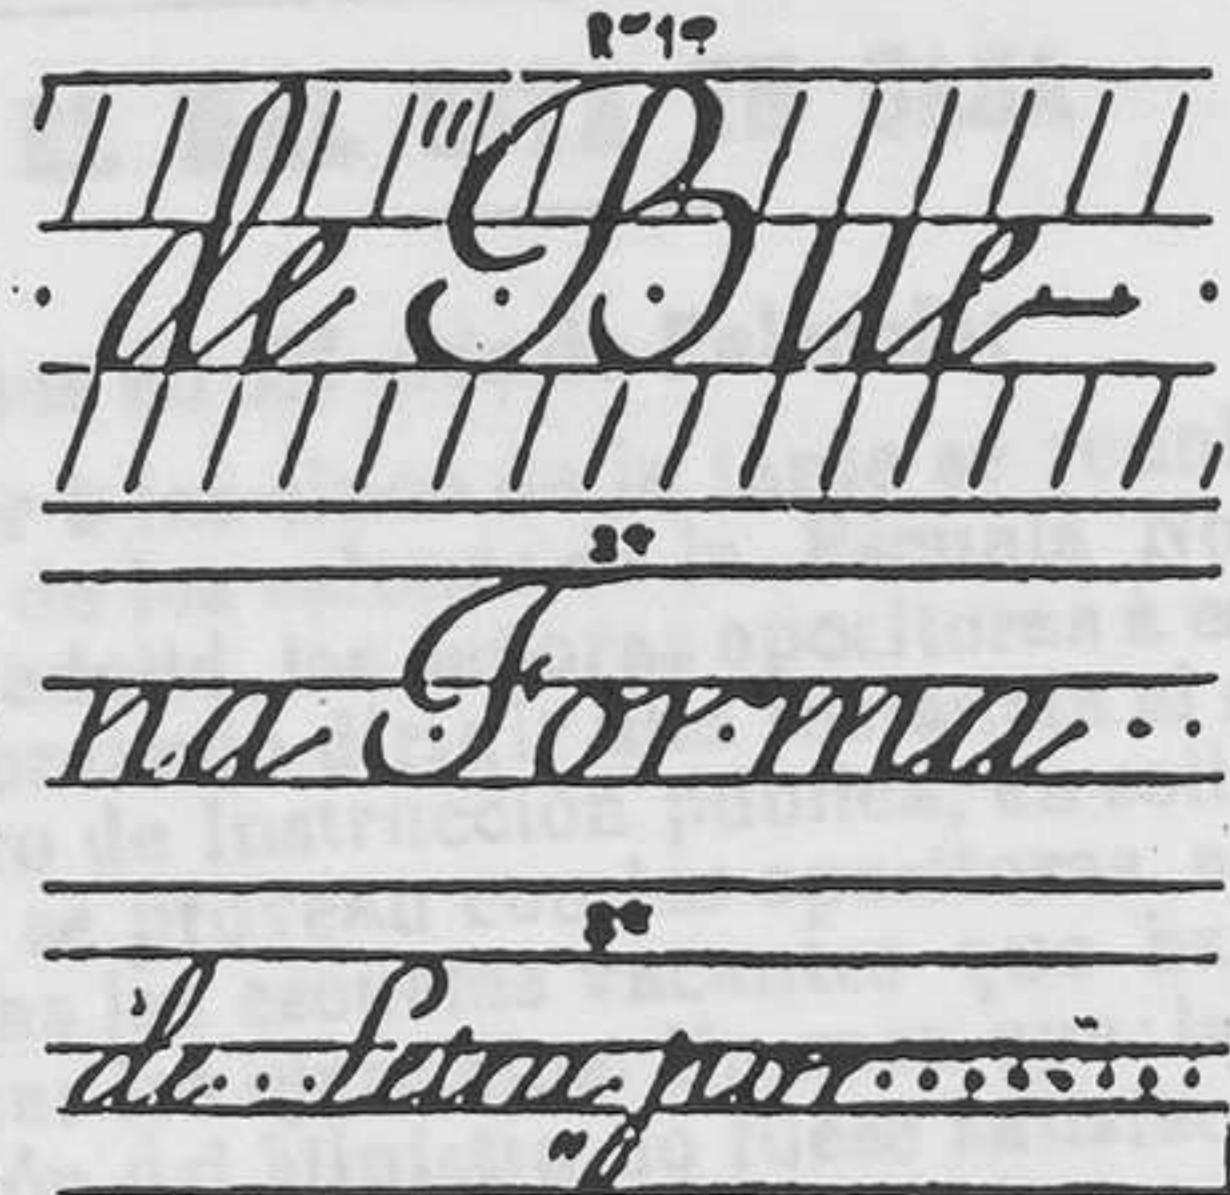 Rª 1ª
de Bue-
2ª
na Forma
3ª
de Letra por